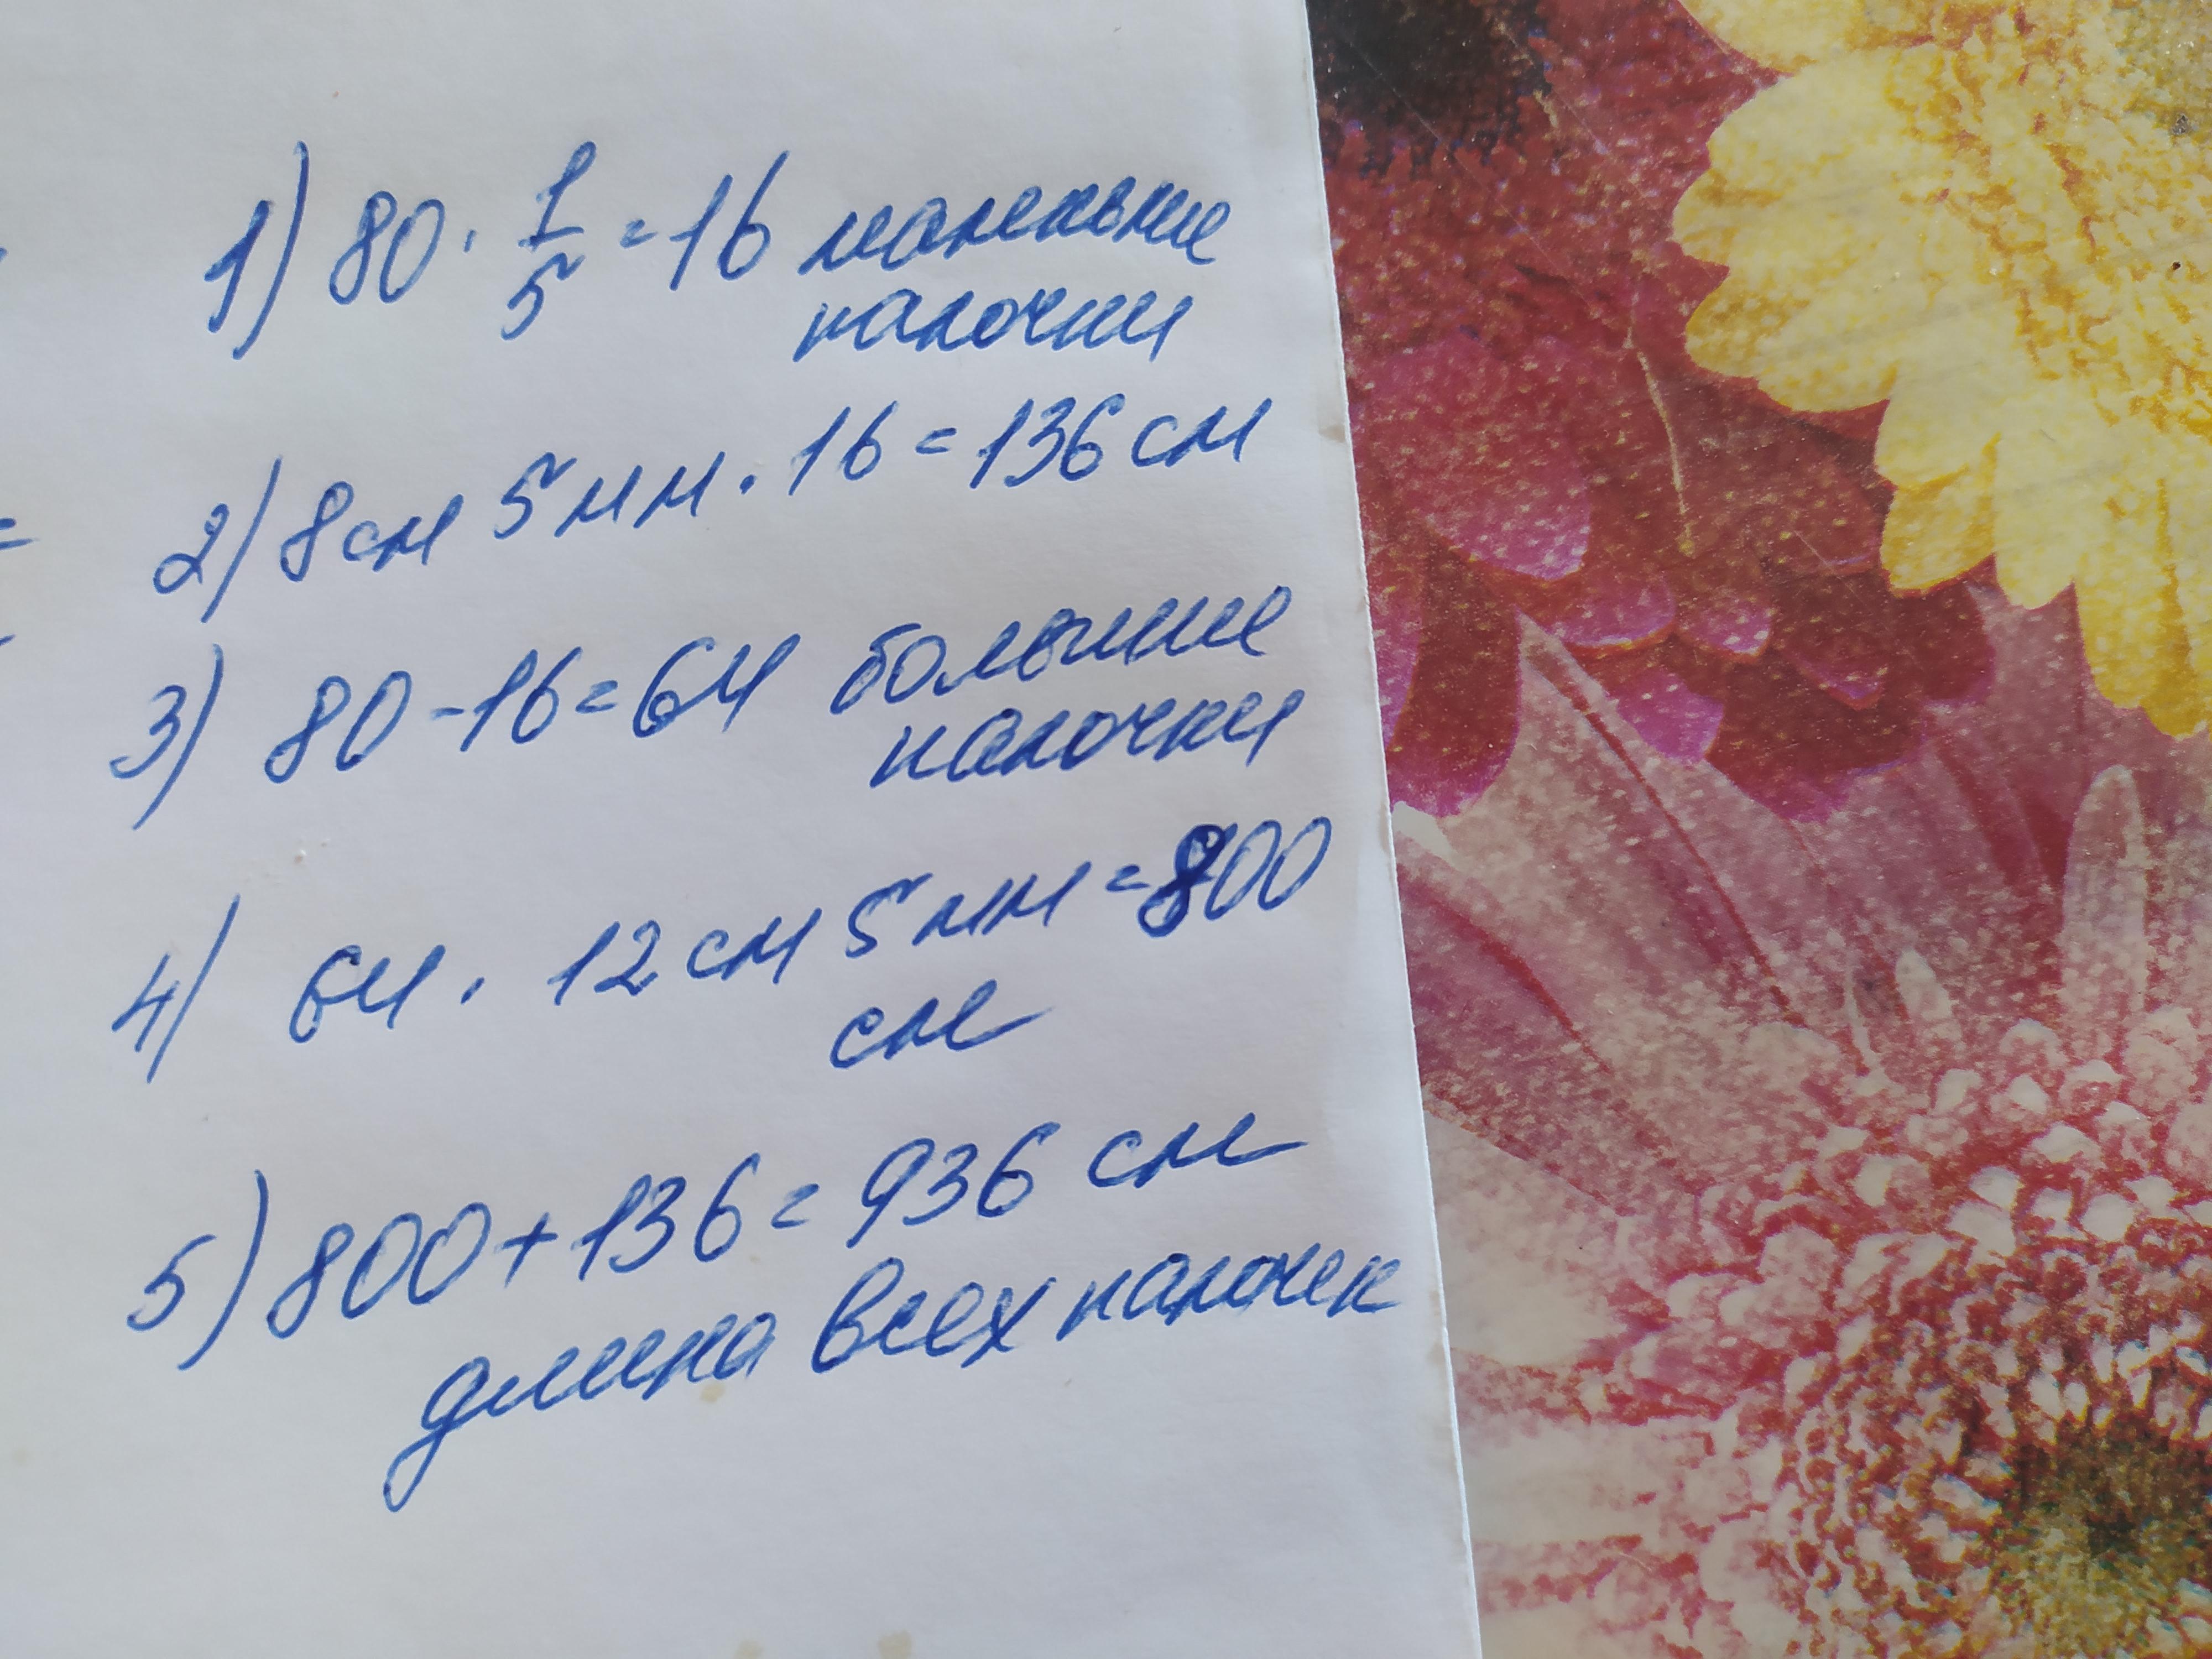 1) 80 · 1/5 = 16 маленькие
палочки
2) 8 см 5 мм · 16 = 136 см
3) 80 - 16 = 64 большие
палочки
4) 64 · 12 см 5 мм = 800
см
5) 800 + 136 = 936 см
длина всех палочек